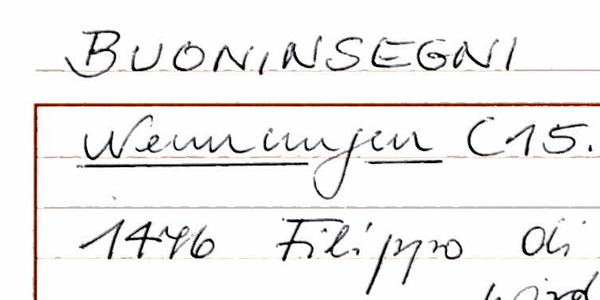 BUONINSEGNI
Wennungen (15.
1446 Filippo di
wird